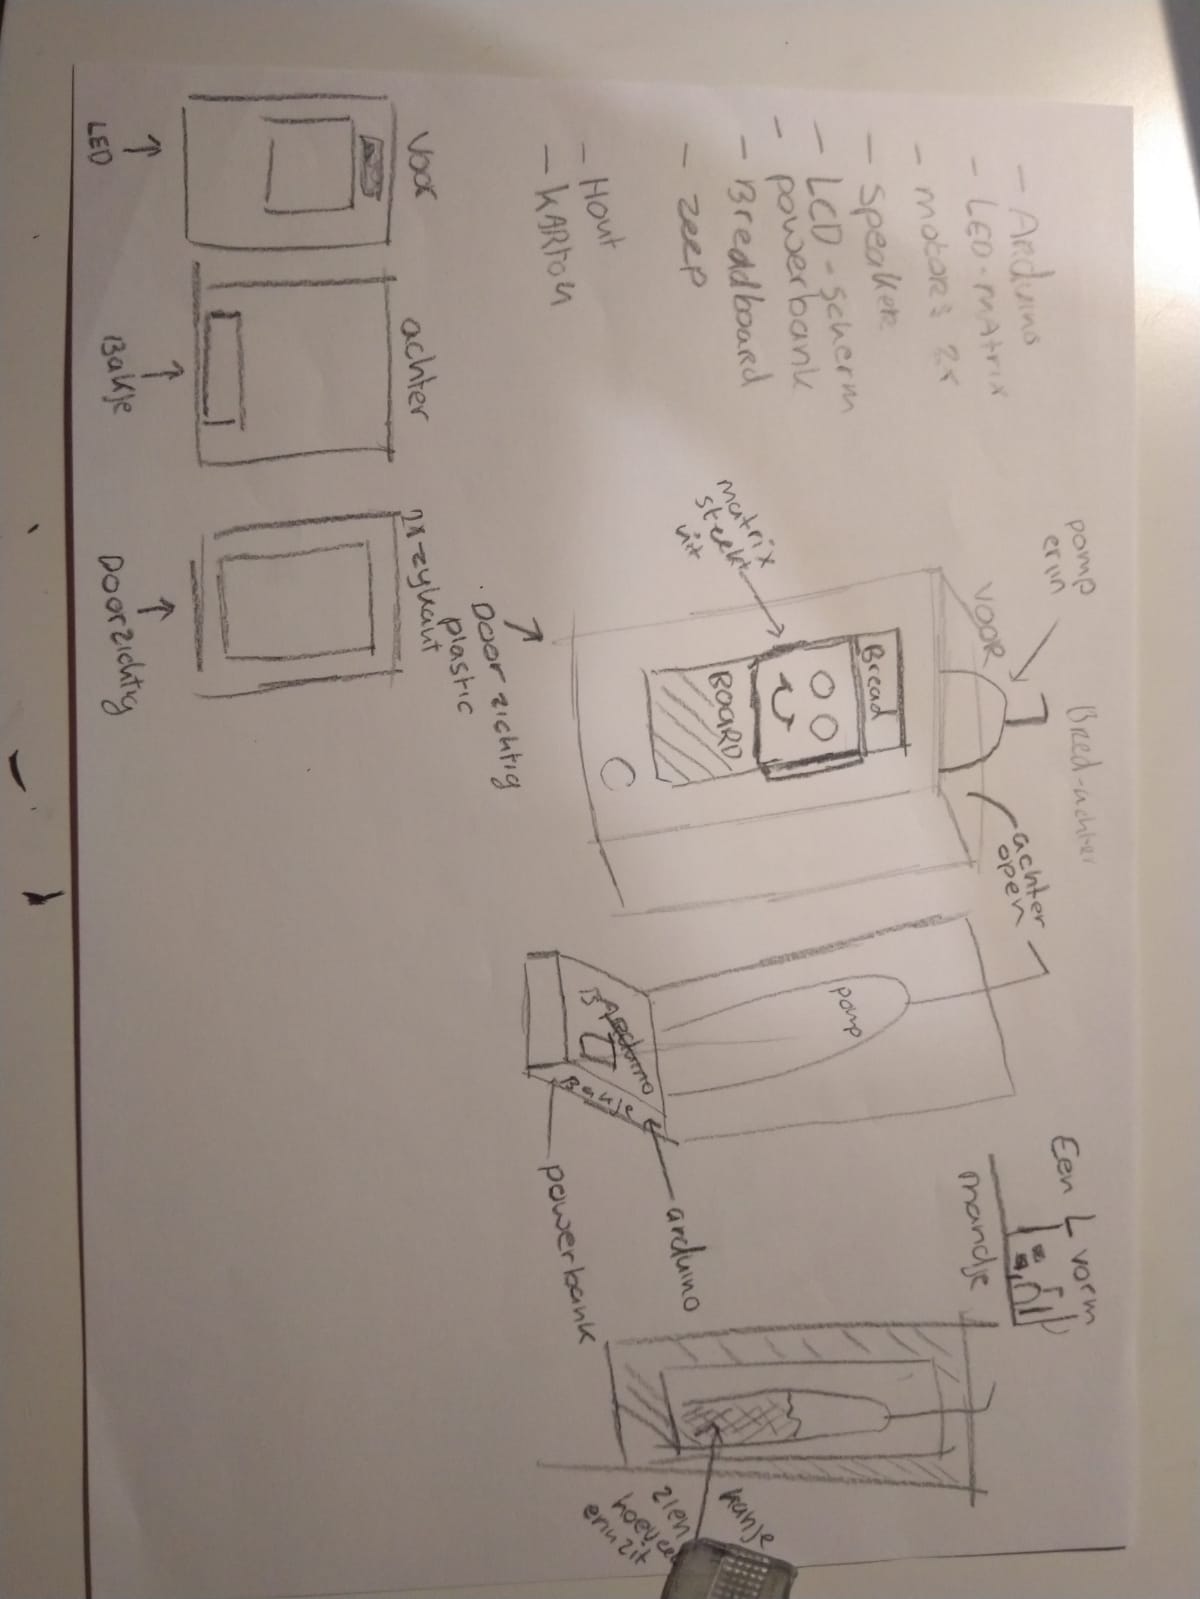 - Arduino
- LED-MAtrix
- motors 2x
- Speaker
- LCD-scherm
- powerbank
- Breadboard
- zeep
- Hout
- KARTON
pomp
erin
Bred-achter
VOOR
achter
open
Bread
BOARD
matrix
steekt
uit
Door zichtig
plastic
pomp
Arduino
Bakje
arduino
powerbank
Een L vorm
mandje
kanje
zien
hoeveel
erin zit
Voor
achter
2x-zykant
LED
Bakje
Doorzichtig